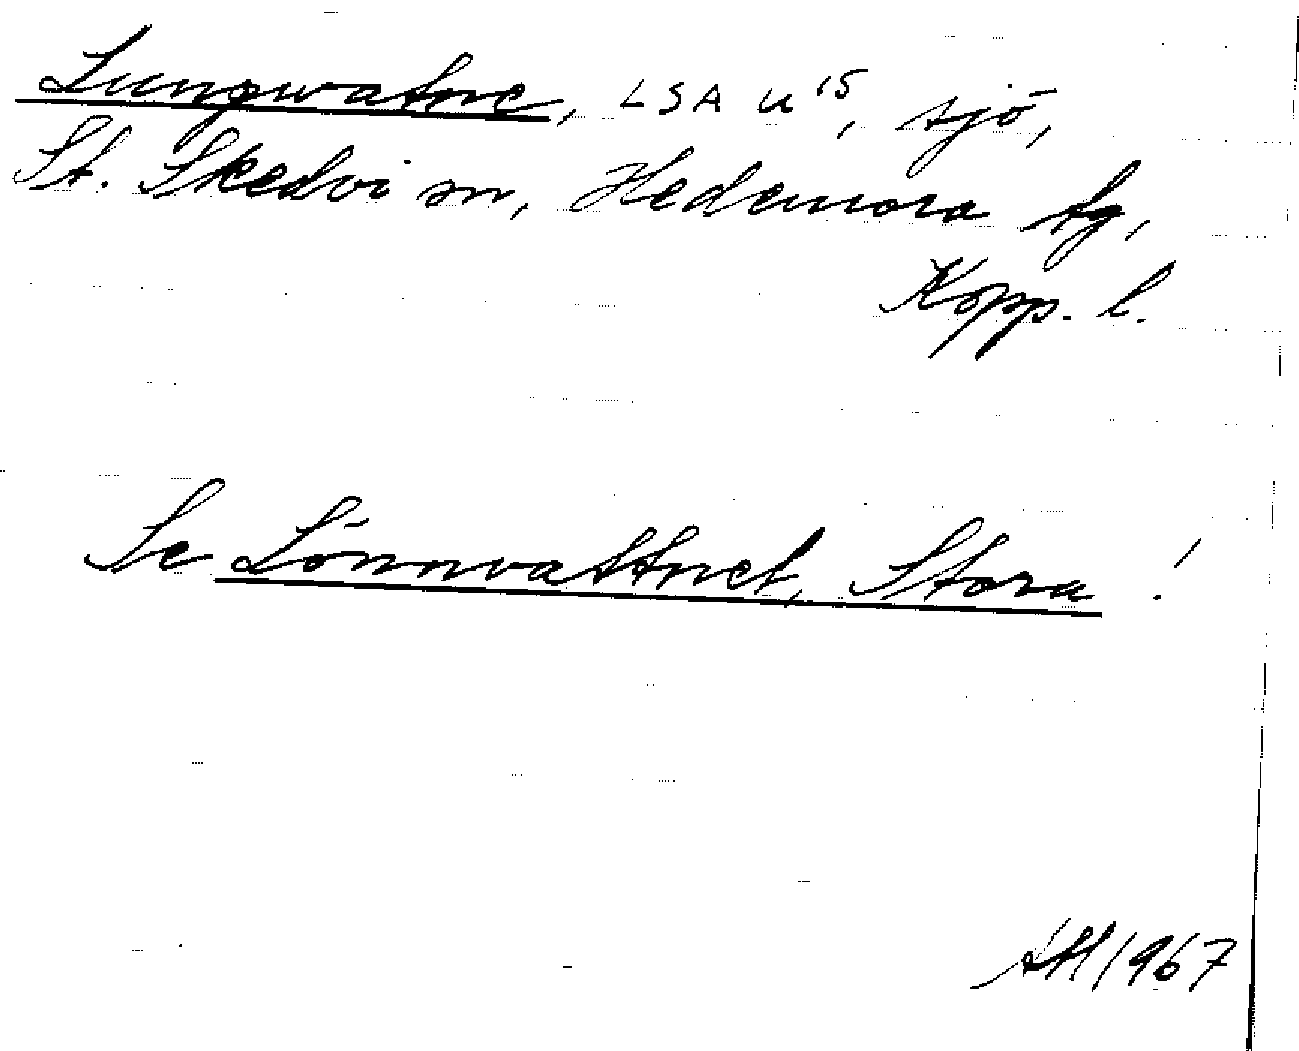 Lungwatne, LSA U 15, sjö,
St. Skedvi sn, Hedemora tg,
Kopp. l.
Se Lönnvattnet, Stora!
AH 1967